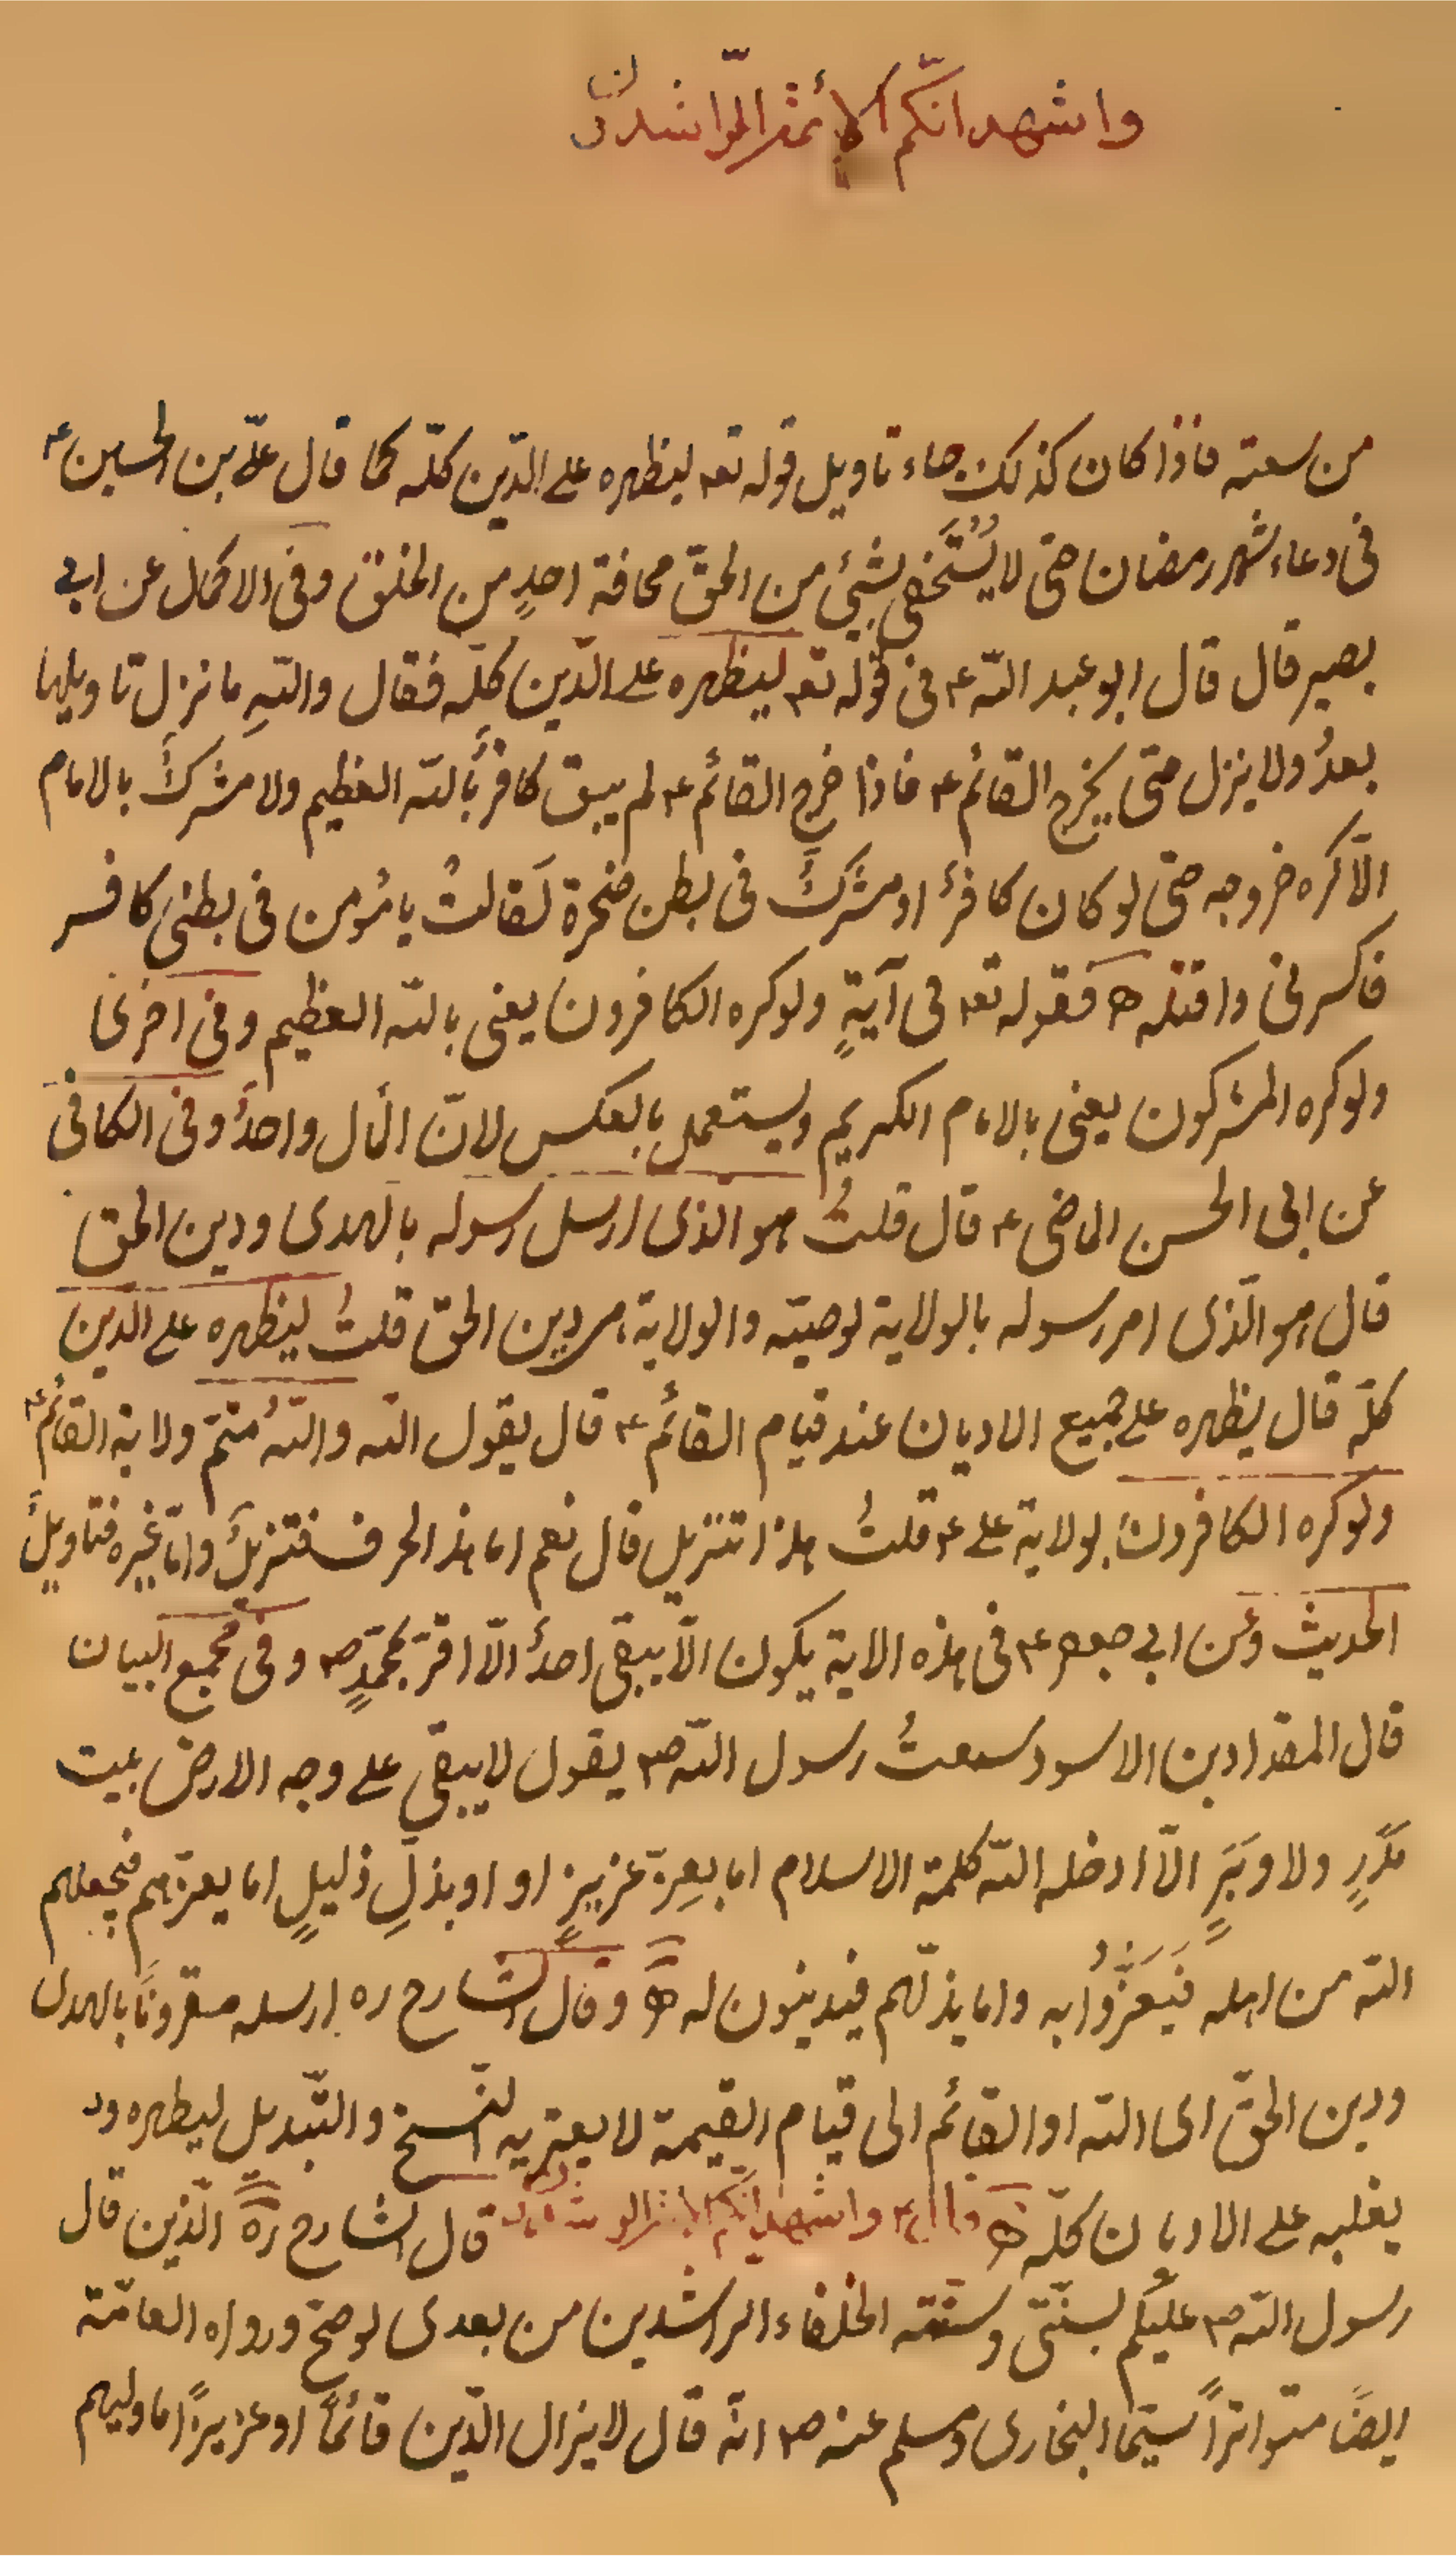 واشهد انكّم الأئمة الرّاشدون
من سعته فاذا كان كذلك جاء تاويل قوله تعه ليظهره على الدّين كلّه كما قال علىّ بن الحسين ع
فى دعاء شهر رمضان حتى لا يُسْتَخفى بشئٍ من الحقّ مخافة احدٍ من الخلق وفى الاكمال عن ابى
بصير قال قال ابو عبد الله ع فى قوله تعه ليظهره على الدّين كلّه فقال واللهِ ما نزل تاويلها
بعدُ ولا ينزل حتى يخرج القائم ع فاذا خرج القائم ع لم يبق كافرٌ بالله العظيم ولا مشركٌ بالامام
الّا كره خروجه حتى لو كان كافرٌ او مشركٌ فى بطن صخرة لَقالتْ يا مُومن فى بطنى كافر
فاكسرنى واقتله ه فقوله تعه فى آيةٍ ولو كره الكافرون يعنى بالله العظيم وفى اخرىٰ
ولو كره المشركون يعنى بالامام الكريم ويستعمل بالعكس لانّ المآل واحدٌ وفى الكافى
عن ابى الحسن الماضى ع قال قلتُ هو الذى ارسل رسوله بالهدى ودين الحق
قال هو الّذى امر رسوله بالولاية لوصيّه والولاية هى دين الحقّ قلتُ ليظهره على الدين
كلّه قال يظهره على جميع الاديان عند قيام القائم ع قال يقول الله واللهُ متمّ ولاية القائم ع
ولو كره الكافرون بولاية على ع قلتُ هذا تنزيل قال نعم اما هذا الحرف فتنزيلٌ وامّا غيره فتاويلٌ
الحديث وعن ابى جعفر ع فى هذه الاية يكون الّا يبقى احدٌ الّا اقرّ بمحمّدٍ ص وفى مجمع البيان
قال المقداد بن الاسود سمعتُ رسول الله ص يقول لا يبقى على وجه الارض بيت
مَدَرٍ ولا وَبَرٍ الّا ادخله الله كلمة الاسلام اما بعِزّة عزيزٍ او او بذلِّ ذليلٍ اما يعزّهم فيجعلهم
الله من اهله فيَعَزُّوا به واما يذلّهم فيدينون له ه وقال الشارح ره ارسله مقرونًا بالهدى
ودين الحقّ اى الله او القائم الى قيام القيمة لا يعتريه النّسخ والتّبديل ليظهره ود
يغلبه على الاديان كلّه ه قال ع واشهد انّكم الائمة الراشدون قال الشارح ره الّذين قال
رسول الله ص عليكم بسنّتى وسنّته الخلفاء الراشدين من بعدى لو صحّ ورواه العامّة
ايضًا متواترًا سيّما البخارى ومسلم عنه ص انه قال لا يزال الدّين قائمًا او عزيزًا ما وليهم